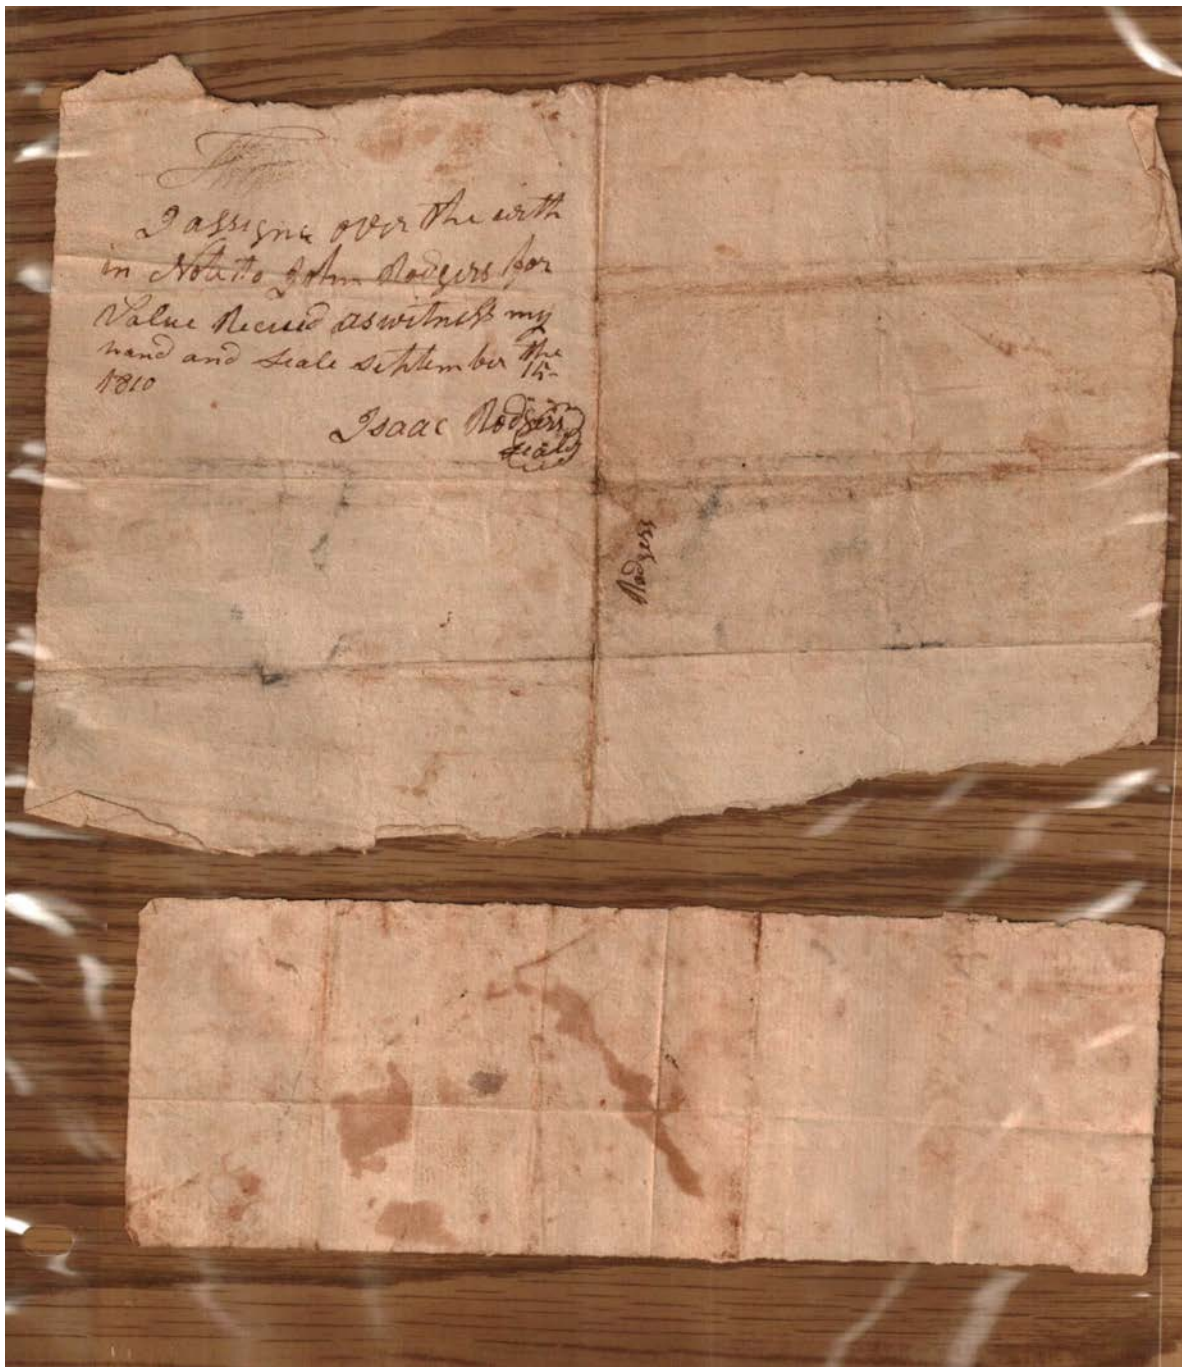 I assigne over the with
in Note to John Rodgers for
Value Recued as witness my
hand and seale september the
15-
1810
Isaac Rodgers
seale
Rodgers